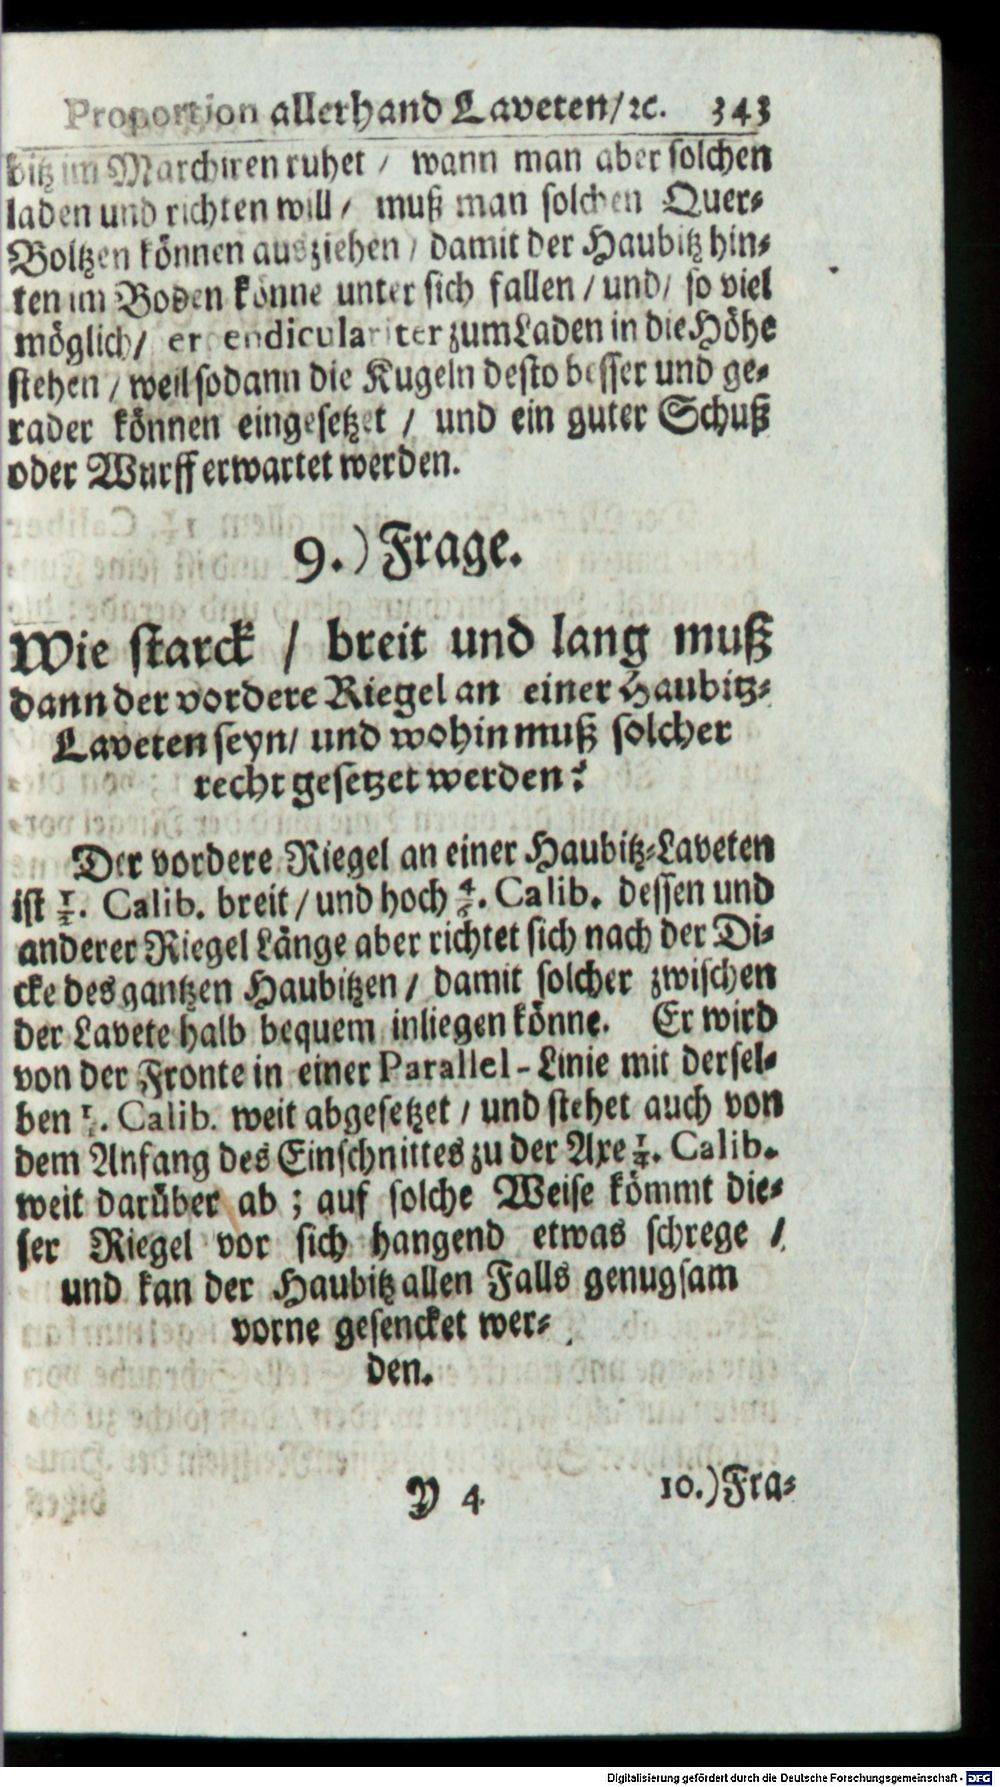 Proportion allerhand Laveten/ꝛc. 343
bitz im Marchiren ruhet / wann man aber solchen
laden und richten will / muß man solchen Quer-
Boltzen können ausziehen / damit der Haubitz hin-
ten im Boden könne unter sich fallen / und / so viel
möglich / perpendiculariter zum Laden in die Höhe
stehen / weil sodann die Kugeln desto besser und ge-
rader können eingesetzet / und ein guter Schuß
oder Wurff erwartet werden.
9.) Frage.
Wie starck / breit und lang muß
dann der vordere Riegel an einer Haubitz-
Laveten seyn / und wohin muß solcher
recht gesetzet werden?
Der vordere Riegel an einer Haubitz-Laveten
ist 1/2. Calib. breit / und hoch Calib. dessen und
anderer Riegel Länge aber richtet sich nach der Di-
cke des gantzen Haubitzen / damit solcher zwischen
der Lavete halb bequem inliegen könne. Er wird
von der Fronte in einer Parallel-Linie mit dersel-
ben Calib. weit abgesetzet / und stehet auch von
dem Anfang des Einschnittes zu der Axe 1/4. Calib.
weit darüber ab ; auf solche Weise kömmt die-
ser Riegel vor sich hangend etwas schrege /
und kan der Haubitz allen Falls genugsam
vorne gesencket wer-
den.
Y 4 10.) Fra-
Digitalisierung gefördert durch die Deutsche Forschungsgemeinschaft - DFG